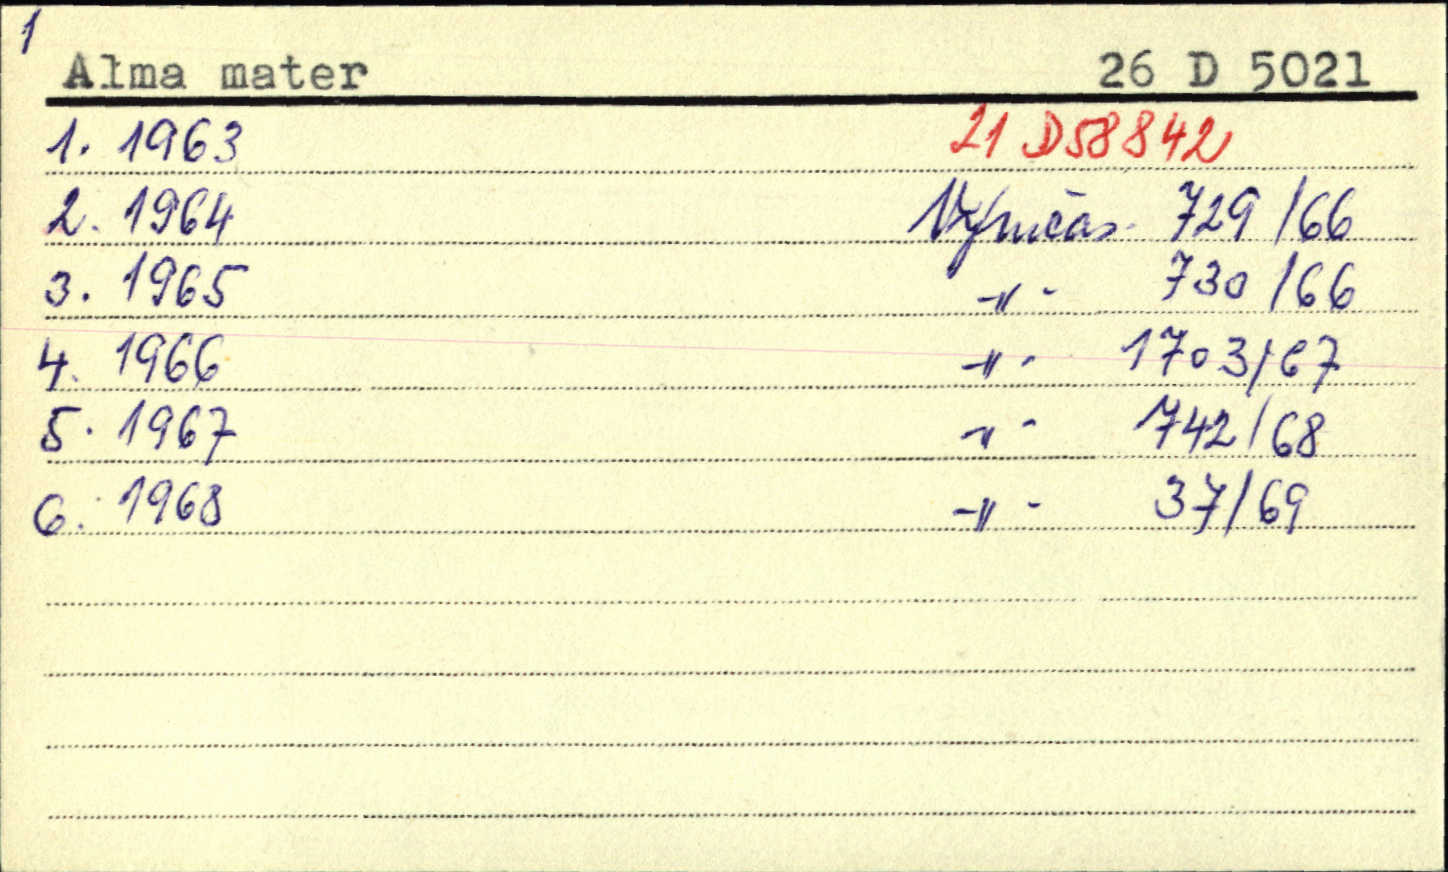 1
Alma mater 26 D 5021
1. 1963 21 D 58842
2. 1964 Výměčas. 729/66
3. 1965 -"- 730/66
4. 1966 -"- 1703/67
5. 1967 -"- 742/68
6. 1968 -"- 37/69